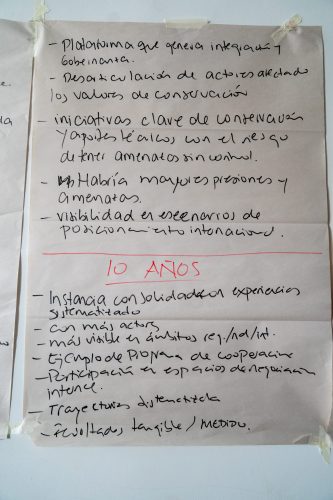 - Plataforma que genera integración y
gobernanza.
- Desarticulación de actores afectado
los valores de conservación
- iniciativas clave de conservación
y aportes técnicos con el riesgo
de tener amenazas sin control.
- Habría mayores presiones y
amenazas.
- visibilidad en escenarios de
posicionamiento internacional.
10 AÑOS
- Instancia consolidada con experiencias
sistematizado
- con más actores
- más visible en ámbitos reg./nal/int.
- Ejemplo de Programa de cooperación
- Participación en espacios de negociación
- Trayectoria sistematizada
- Resultados tangible / MEDIDO.